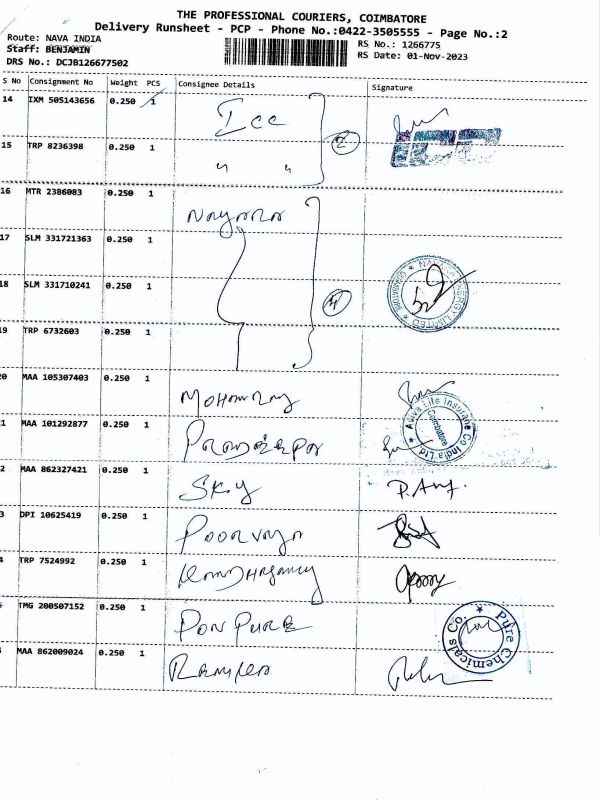 THE PROFESSIONAL COURIERS, COIMBATORE
Delivery Runsheet - PCP - Phone No.:0422-3505555 - Page No.:2
Route: NAVA INDIA
Staff: BENJAMIN
DRS No.: DCJB126677502
RS No.: 1266775
RS Date: 01-Nov-2023
S No Consignment No Weight PCS Consignee Details Signature
14 IXM 505143656 0.250 1 Icc 2
15 TRP 8236398 0.250 1 " "
16 MTR 2386083 0.250 1 Nayara
17 SLM 331721363 0.250 1
18 SLM 331710241 0.250 1 4
19 TRP 6732603 0.250 1
20 MAA 105307403 0.250 1
1 MAA 101292877 0.250 1
2 MAA 862327421 0.250 1 Sky
3 DPI 10625419 0.250 1 Poorvaja
4 TRP 7524992 0.250 1
TMG 200507152 0.250 1 Pon Pure
MAA 862009024 0.250 1
NAYARA ENERGY LIMITED * COIMBATORE *
Aviva Life Insurance Co India Ltd *
Coimbatore
Pure Chemicals Co. *